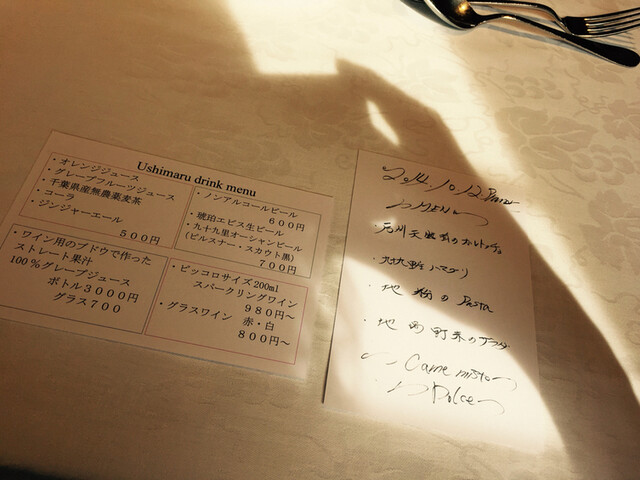 Ushimaru drink menu
・オレンジジュース
・グレープフルーツジュース
・千葉県産無農薬麦茶
・コーラ
・ジンジャーエール
５００円
・ノンアルコールビール
６００円
・琥珀エビス生ビール
・九十九里オーシャンビール
(ピルスナー・スカウト黒)
７００円
・ワイン用のブドウで作った
ストレート果汁
100％グレープジュース
ボトル３０００円
グラス７００
・ピッコロサイズ200ml
スパークリングワイン
９８０円～
・グラスワイン 赤・白
８００円～
2014.10.12
MENU
・九十九里 ハマグリ
・地粉の Pasta
・地
Carne mista
Dolce